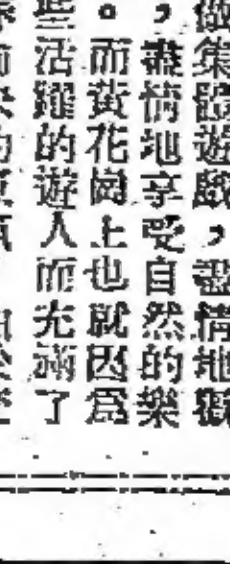 做集體遊戲，盡情地觀
，盡情地享受自然的樂
。而黃花崗上也就因爲
些活躍的遊人而充滿了